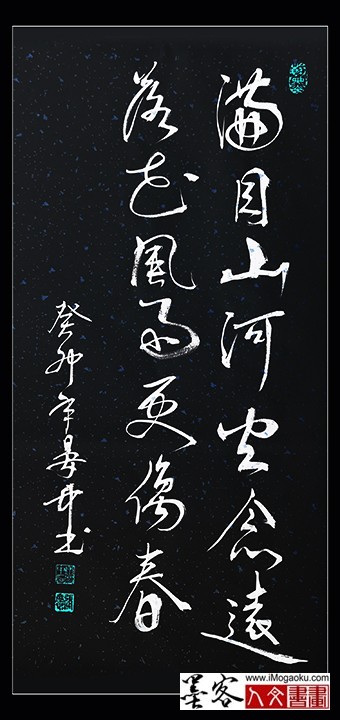 滿目山河空念遠
落花風雨更傷春
癸卯年
書
墨客
www.iMogaoku.com
人文書畫